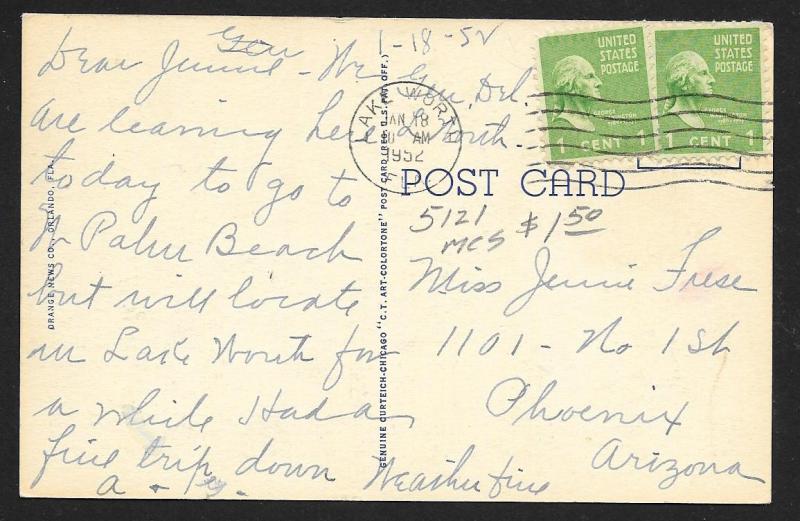 1-18-52
Gen
Dear Jennie - We
Gen. Del.
are leaving here L Worth.
today to go to
W Palm Beach
but will locate
in Lake Worth for
a while Had a
fine trip down
Weather fine
LAKE WORTH
JAN 18
AM
1952
UNITED
STATES
POSTAGE
GEORGE
WASHINGTON
1 CENT 1
UNITED
STATES
POSTAGE
GEORGE
WASHINGTON
1 CENT 1
POST CARD
5121
MCS $1.50
Miss Jennie Frese
1101 - No 1 St
Phoenix
Arizona
ORANGE NEWS CO., ORLANDO, FLA.
GENUINE CURTEICH-CHICAGO "C.T. ART-COLORTONE" POST CARD (REG. U.S. PAT. OFF.)